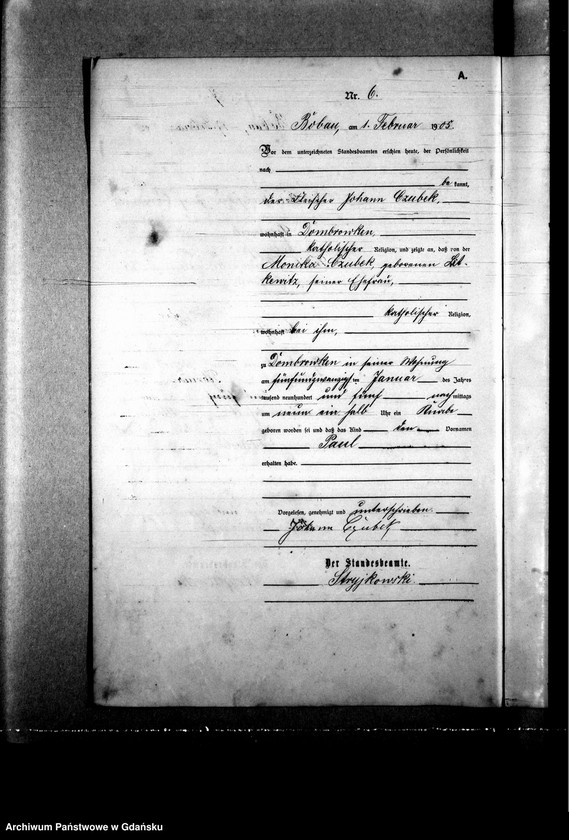 A.
Nr. 6.
Bobau, am 1. Februar 1905
Vor dem unterzeichneten Standesbeamten erschien heute, der Persönlichkeit
nach
be kannt,
der Johann Czubek,
wohnhaft in Dombrowken,
katholischer Religion, und zeigte an, daß von der
Monika Czubek, geborenen
kewitz, seiner Ehefrau,
katholischer Religion,
wohnhaft bei ihm,
zu Dombrowken in seiner Wohnung
am fünfundzwanzigsten Januar des Jahres
tausend neunhundert und fünf nach mittags
um neun ein halb Uhr ein Knabe
geboren worden sei und daß das Kind den Vornamen
Paul
erhalten habe.
Vorgelesen, genehmigt und unterschrieben.
Johann Czubek
Der Standesbeamte.
Stryjkowski
Archiwum Państwowe w Gdańsku